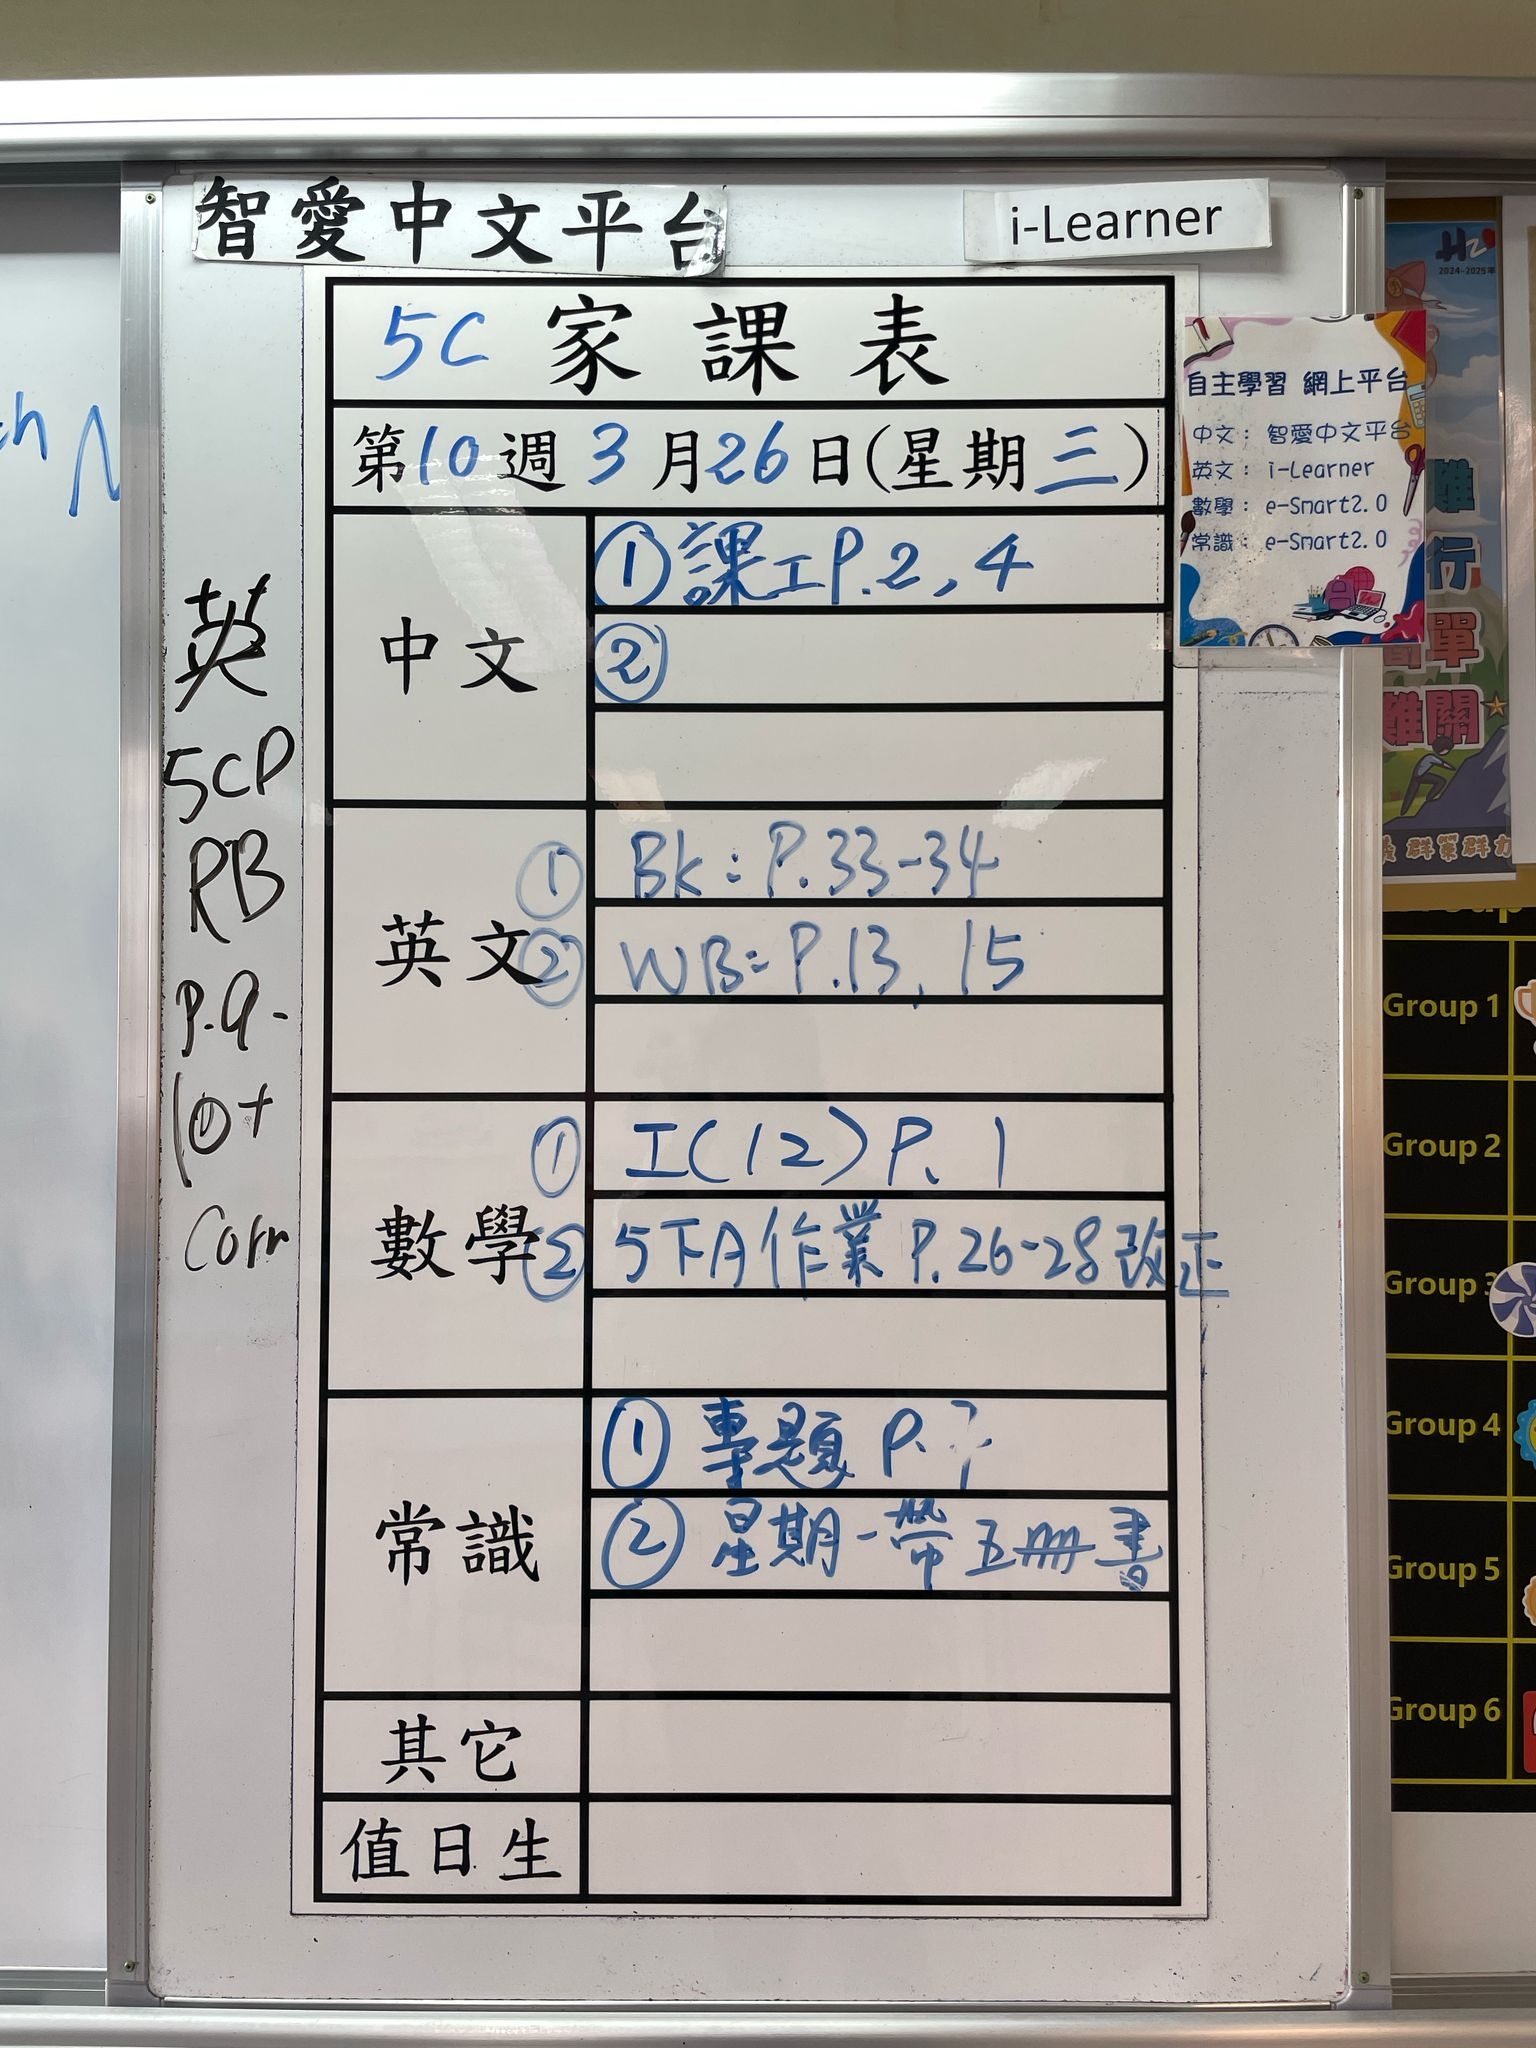 智愛中文平台
i-Learner
5C 家課表
第10週 3月26日(星期三)
中文
① 課工P.2, 4
②
英文
① Bk: P.33-34
② WB: P.13, 15
數學
① 工(12) P. 1
② 5下A作業 P.26-28改正
常識
① 專題 P.
② 星期一帶五冊書
其它
值日生
英
5CP
RB
P.9-
10+
Corr
2024-2025年
自主學習 網上平台
中文： 智愛中文平台
英文： i-Learner
數學： e-Smart2.0
常識： e-Smart2.0
行
單
難關
群策群力
Group 1
Group 2
Group 3
Group 4
Group 5
Group 6